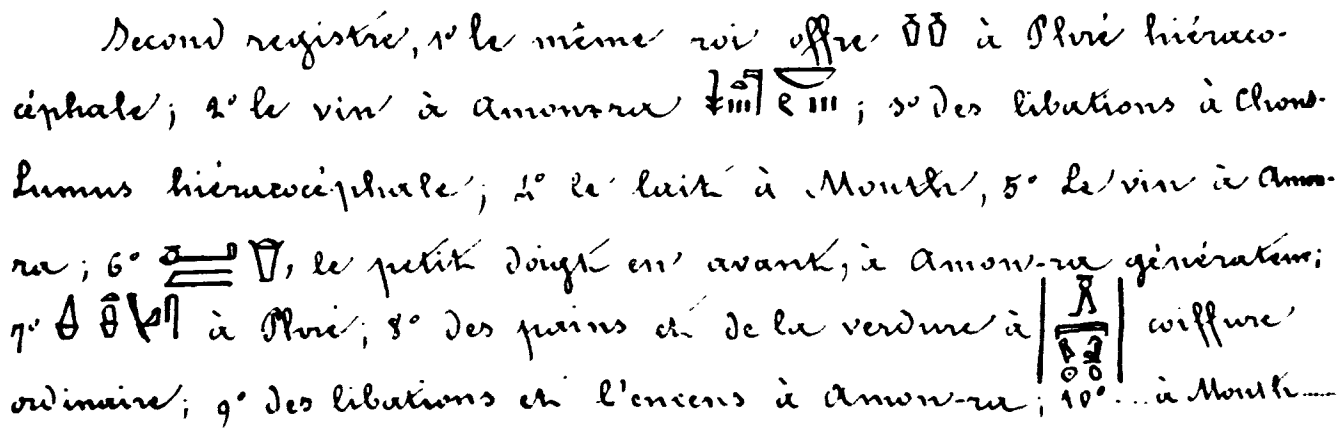 Second registre, 1° le même roi offre 𓏌𓏌 à Phré hiéraco-
céphale; 2° le vin à Amon-ra ; 3° des libations à Chons-
Lunus hiéracocéphale; 4° le lait à Month, 5° Le vin à Amon-
ra; 6° , le petit doigt en avant, à Amon-ra générateur;
7° à Phré; 8° des pains et de la verdure à coiffure
ordinaire; 9° des libations et l'encens à Amon-ra; 10° ... à Month.....